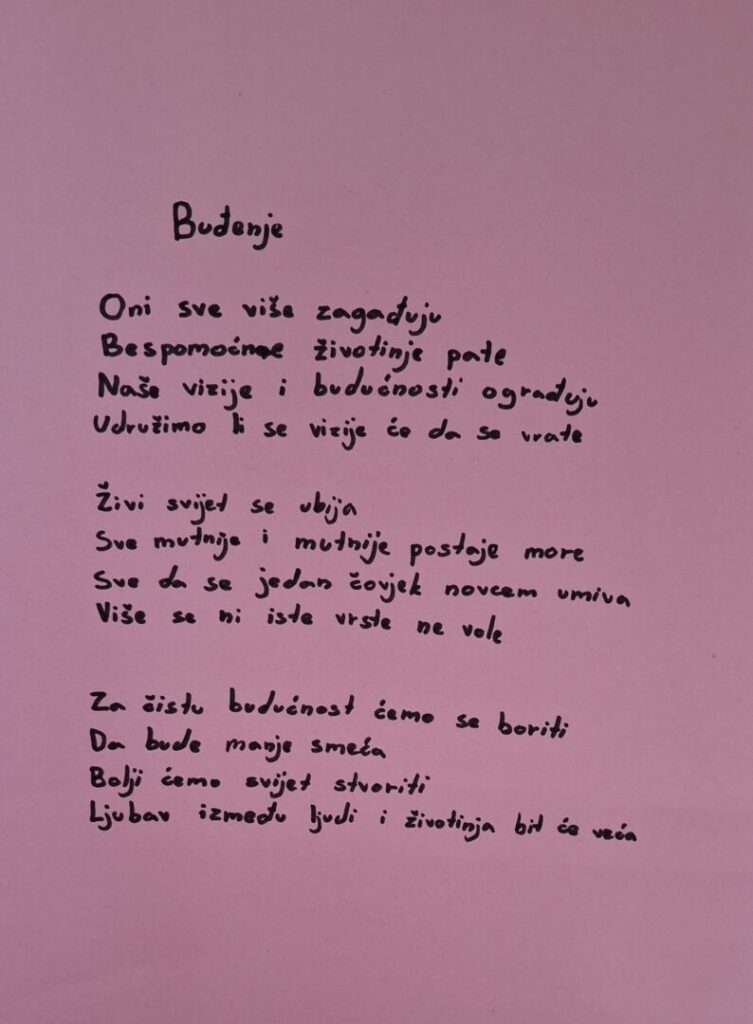 Buđenje
Oni sve više zagađuju
Bespomoćne životinje pate
Naše vizije i budućnosti ograđuju
Udružimo li se vizije će da se vrate
Živi svijet se ubija
Sve mutnije i mutnije postaje more
Sve da se jedan čovjek novcem umiva
Više se ni iste vrste ne vole
Za čistu budućnost ćemo se boriti
Da bude manje smeća
Bolji ćemo svijet stvoriti
Ljubav između ljudi i životinja bit će veća